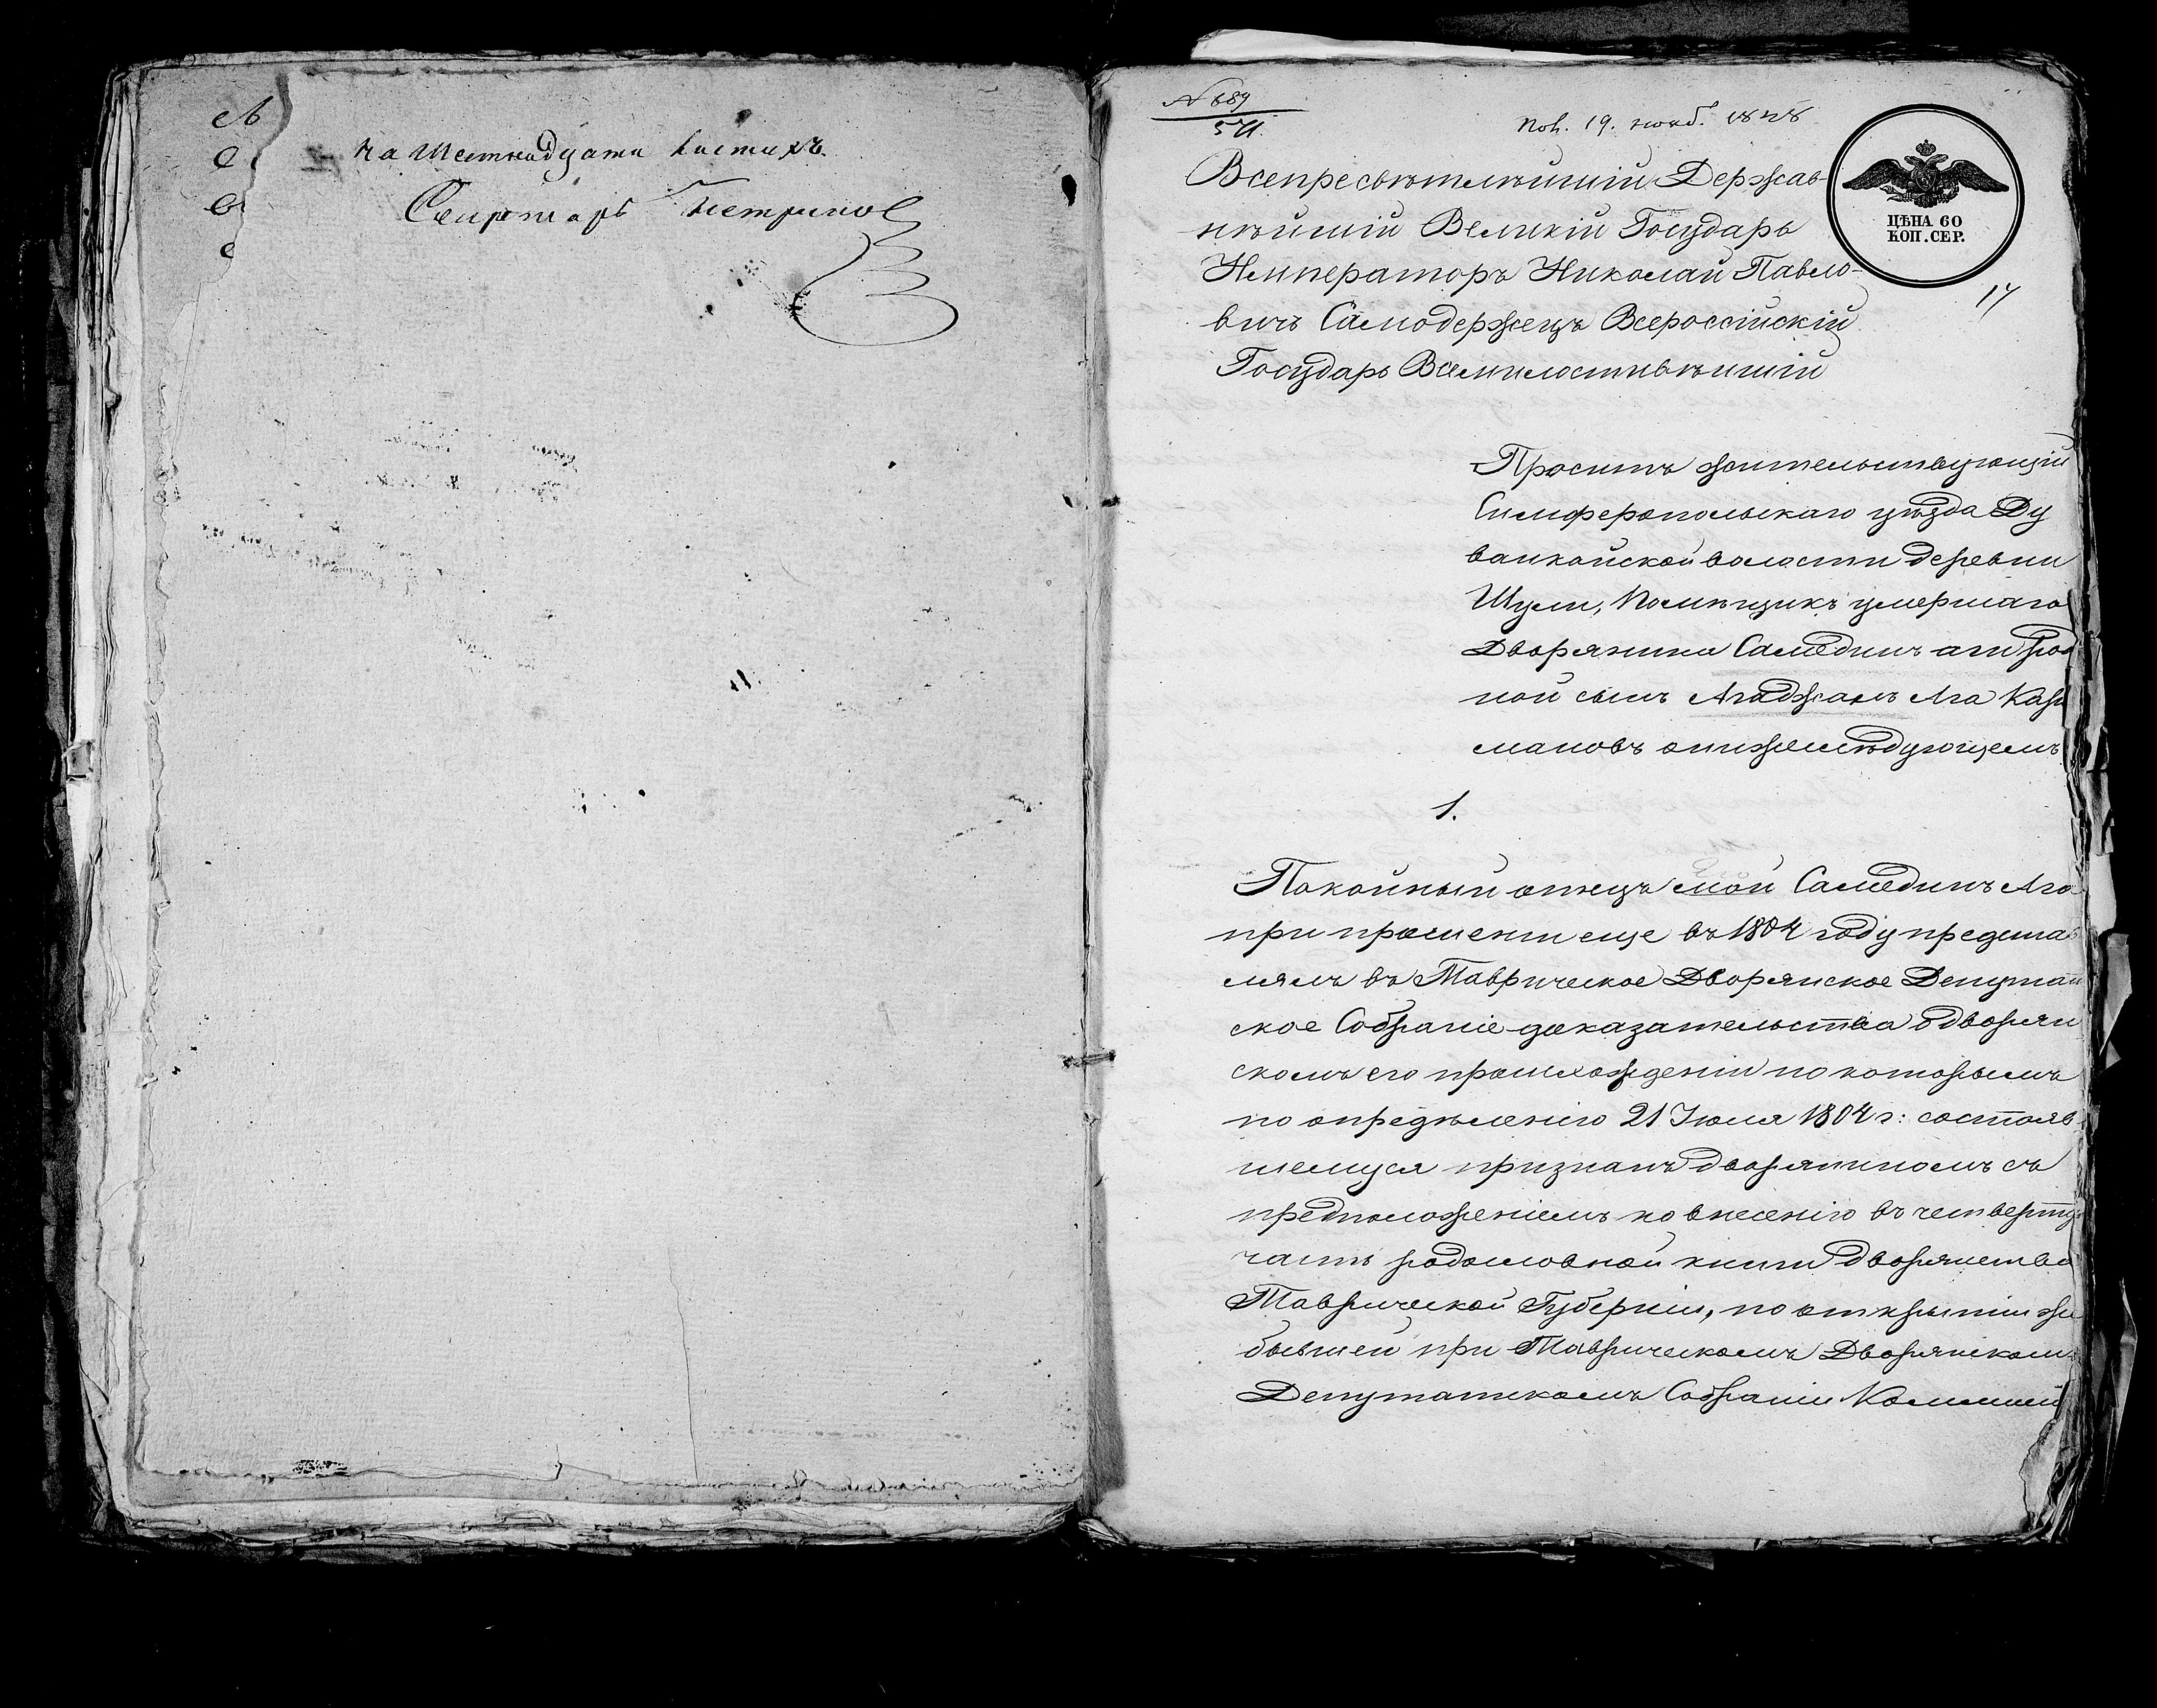 на шестнадцати листахъ.
Секретарь
№ 689
571.
Пол. 19. нояб. 1848
ЦѢНА 60
КОП. СЕР.
17
Всепресвѣтлѣйшій Держав-
нѣйшій Великій Государь
Императоръ Николай Павло-
вичъ Самодержецъ Всероссійскій
Государь Всемилостивѣйшій
Проситъ жительствующій
Симферопольскаго уѣзда Ду
ванкойской волости деревни
Шули, Помѣщикъ умершаго
Дворянина Самединъ аги род
ной сынъ Агаджанъ Ага Кара
мановъ о нижеслѣдующемъ
1.
Покойный отецъ мой Самединъ Ага
при прошеніи еще въ 1804 году представ
лялъ въ Таврическое Дворянское Депутат
ское Собраніе доказательства о дворян
скомъ его происхожденіи по которымъ
по опредѣленію 21 Іюля 1804 г: состояв
шемуся признанъ дворяниномъ съ
предположеніемъ ко внесенію въ четвертую
часть родословной книги дворянства
Таврической Губерніи, по открытіи же
бывшей при Таврическомъ Дворянскомъ
Депутатскомъ Собраніи Коммисіи